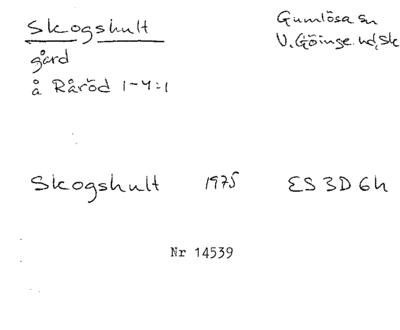 Skogshult
Gumlösa sn
V. Göinge hd, Sk
gård
å Råröd 1-4:1
Skogshult 1975 ES 3D 6h
Nr 14539